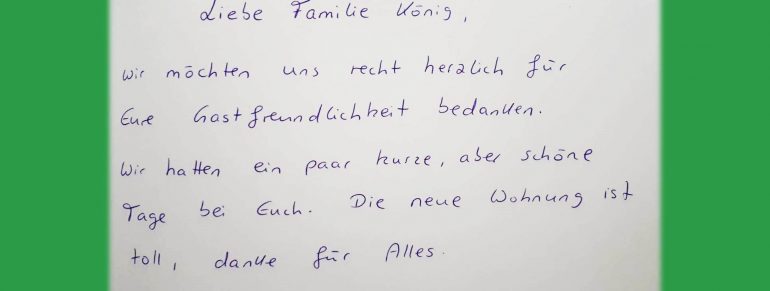 Liebe Familie König,
wir möchten uns recht herzlich für
Eure Gastfreundlichkeit bedanken.
Wir hatten ein paar kurze, aber schöne
Tage bei Euch. Die neue Wohnung ist
toll, danke für Alles.